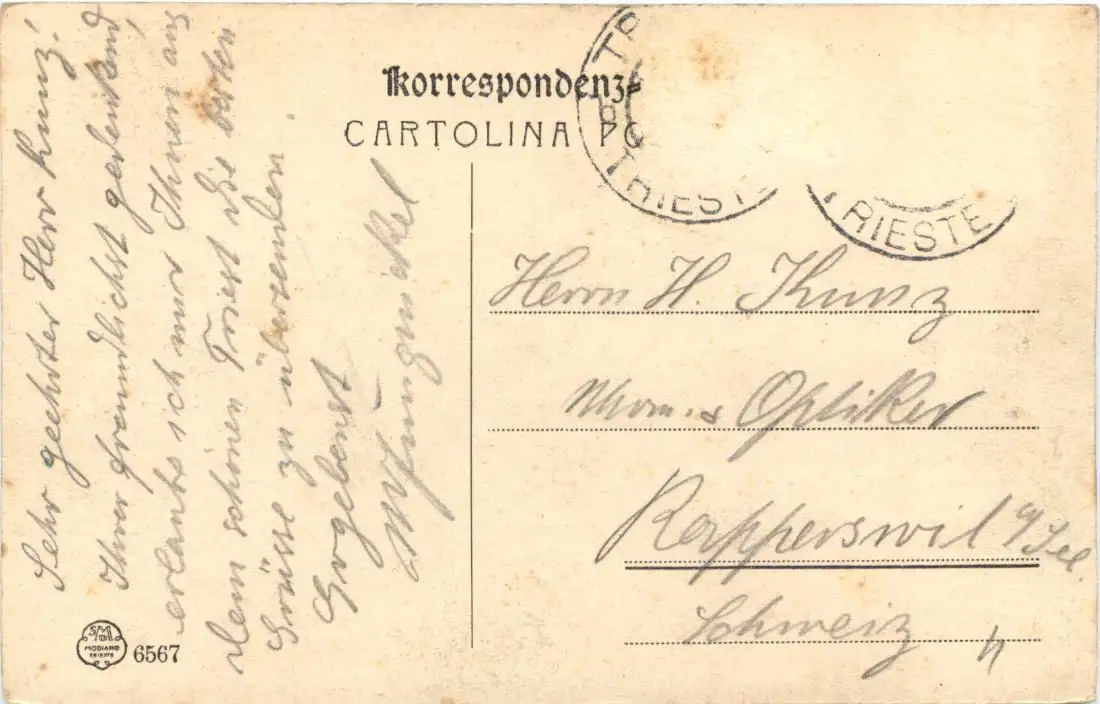 Korrespondenz-
CARTOLINA PO
TRIESTE
TRIESTE
Sehr geehrter Herr Kunz!
Ihrer freundlichst gedenkend
erlaube ich mir Ihnen aus
dem schönen Triest die besten
Grüsse zu übersenden.
Ergebenst
Herrn H. Kunz
Uhrm. & Optiker
Rapperswil a/See.
Schweiz
SMDA
MODIANO
TRIESTE
6567